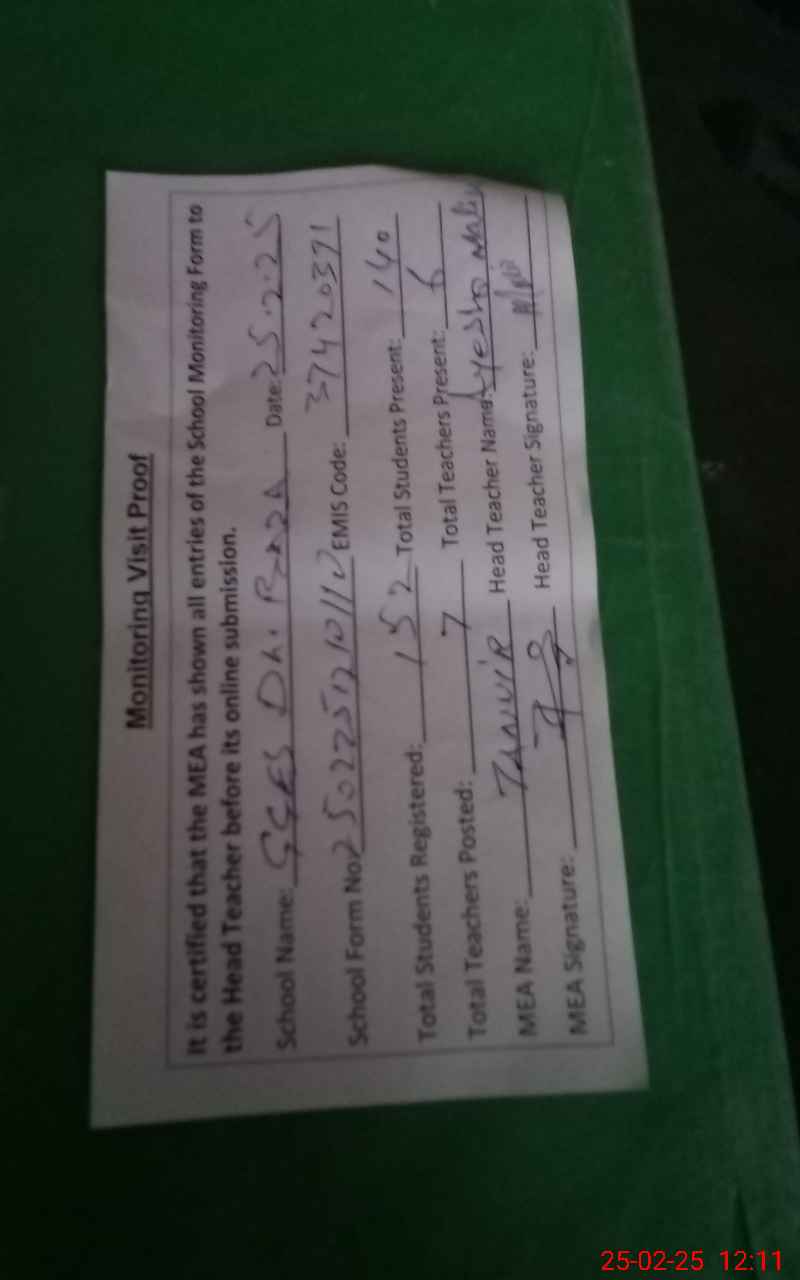 Monitoring Visit Proof
It is certified that the MEA has shown all entries of the School Monitoring Form to
the Head Teacher before its online submission.
School Name: GGES Date: 25.2.25
School Form No: EMIS Code: 37420371
Total Students Registered: 152 Total Students Present: 140
Total Teachers Posted: 7 Total Teachers Present: 6
MEA Name: TANVIR Head Teacher Name: Ayesha Malik
MEA Signature: Head Teacher Signature:
25-02-25 12:11